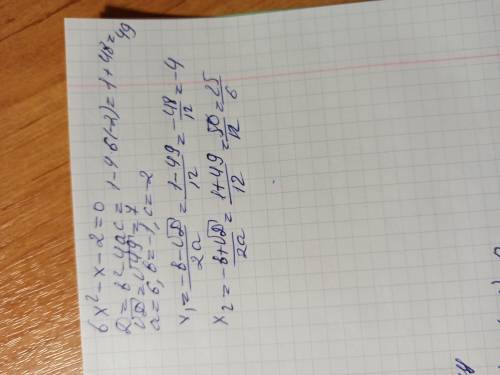 6x² - x - 2 = 0
D = b² - 4ac = 1 - 4·6·(-2) = 1 + 48 = 49
√D = √49 = 7
a = 6, b = -1, c = -2
x₁ = -b-√D / 2a = 1-49 / 12 = -48 / 12 = -4
x₂ = -b+√D / 2a = 1+49 / 12 = 50 / 12 = 25 / 6